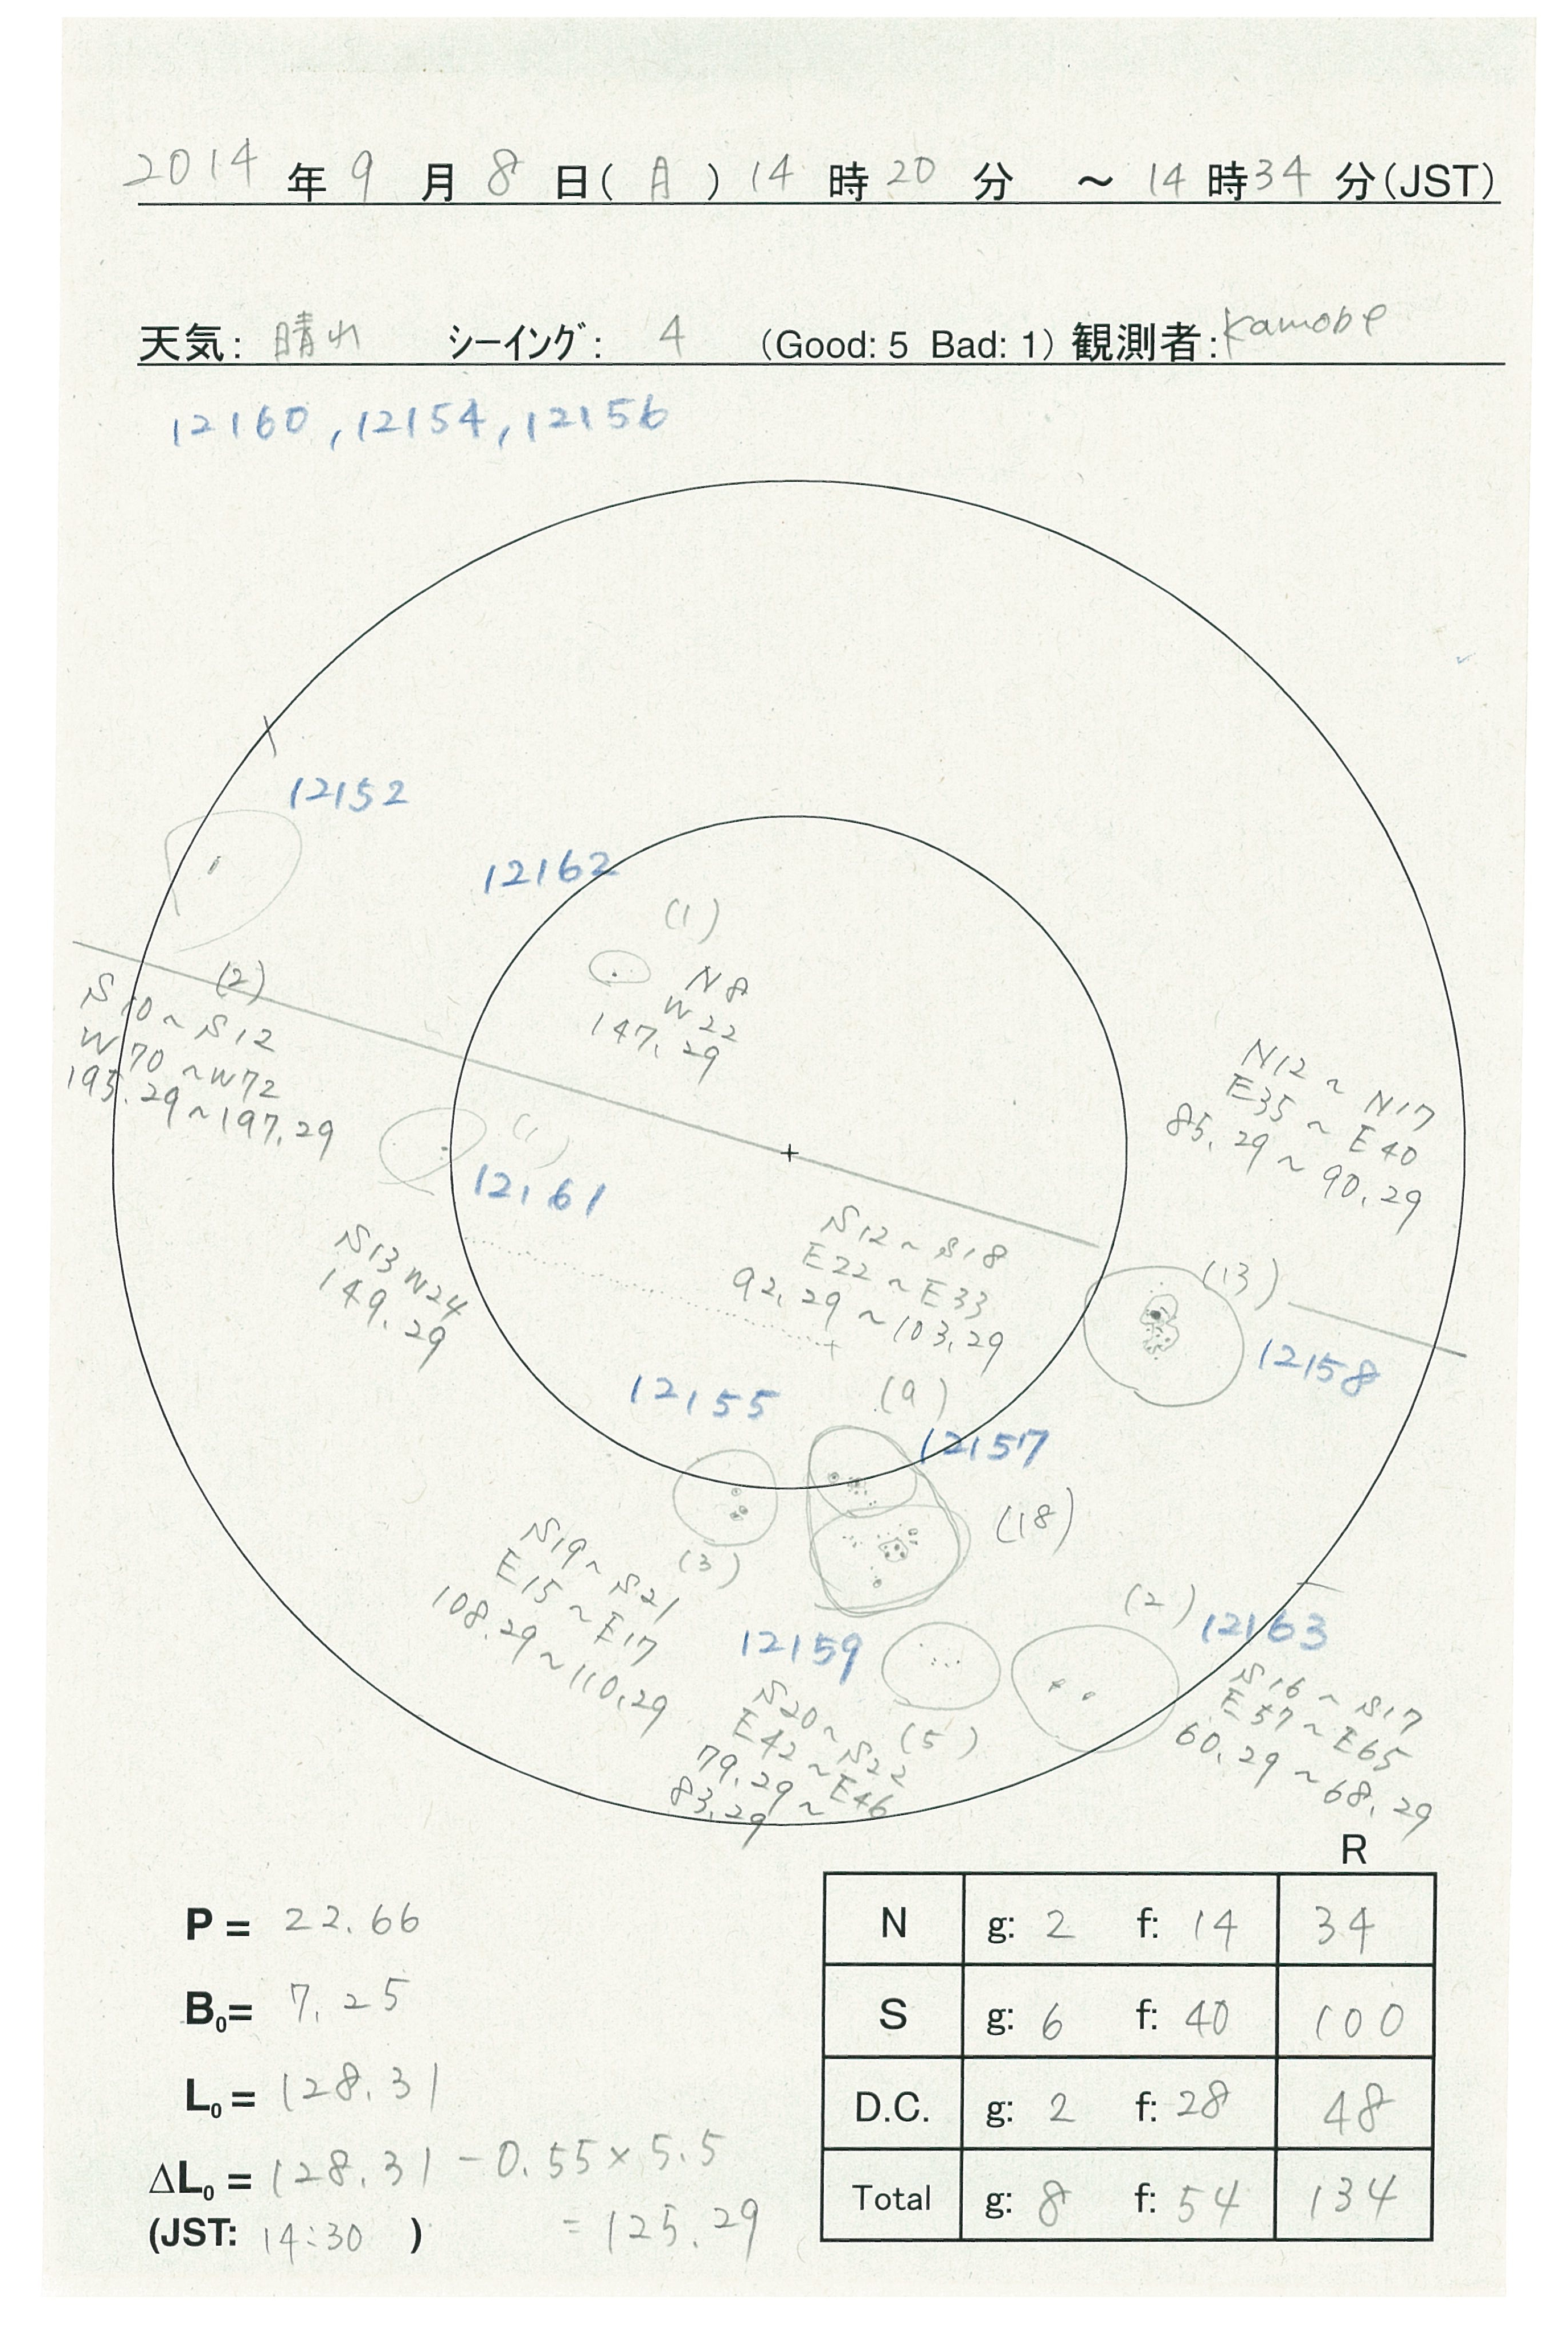 2014 年 9 月 8 日( 月 ) 14 時 20 分 ～ 14 時 34 分(JST)
天気: 晴れ シーイング: 4 (Good: 5 Bad: 1) 観測者: Kamobe
12160, 12154, 12156
12152
12162
(1)
N8
W22
147.29
(2)
S10~S12
W70~W72
195.29~197.29
N12~N17
E35~E40
85.29~90.29
(1)
12161
S13W24
149.29
S12~S18
E22~E33
92.29~103.29
(13)
12158
12155
(9)
12157
(18)
(3)
S19~S21
E15~E17
108.29~110.29
12159
S20~S22
E42~E46
79.29~
83.29
(5)
(2)
12163
S16~S17
E57~E65
60.29~68.29
R
P = 22.66
B0= 7.25
L0= 128.31
ΔL0= 128.31 - 0.55×5.5
(JST: 14:30 ) = 125.29
N g: 2 f: 14 34
S g: 6 f: 40 100
D.C. g: 2 f: 28 48
Total g: 8 f: 54 134